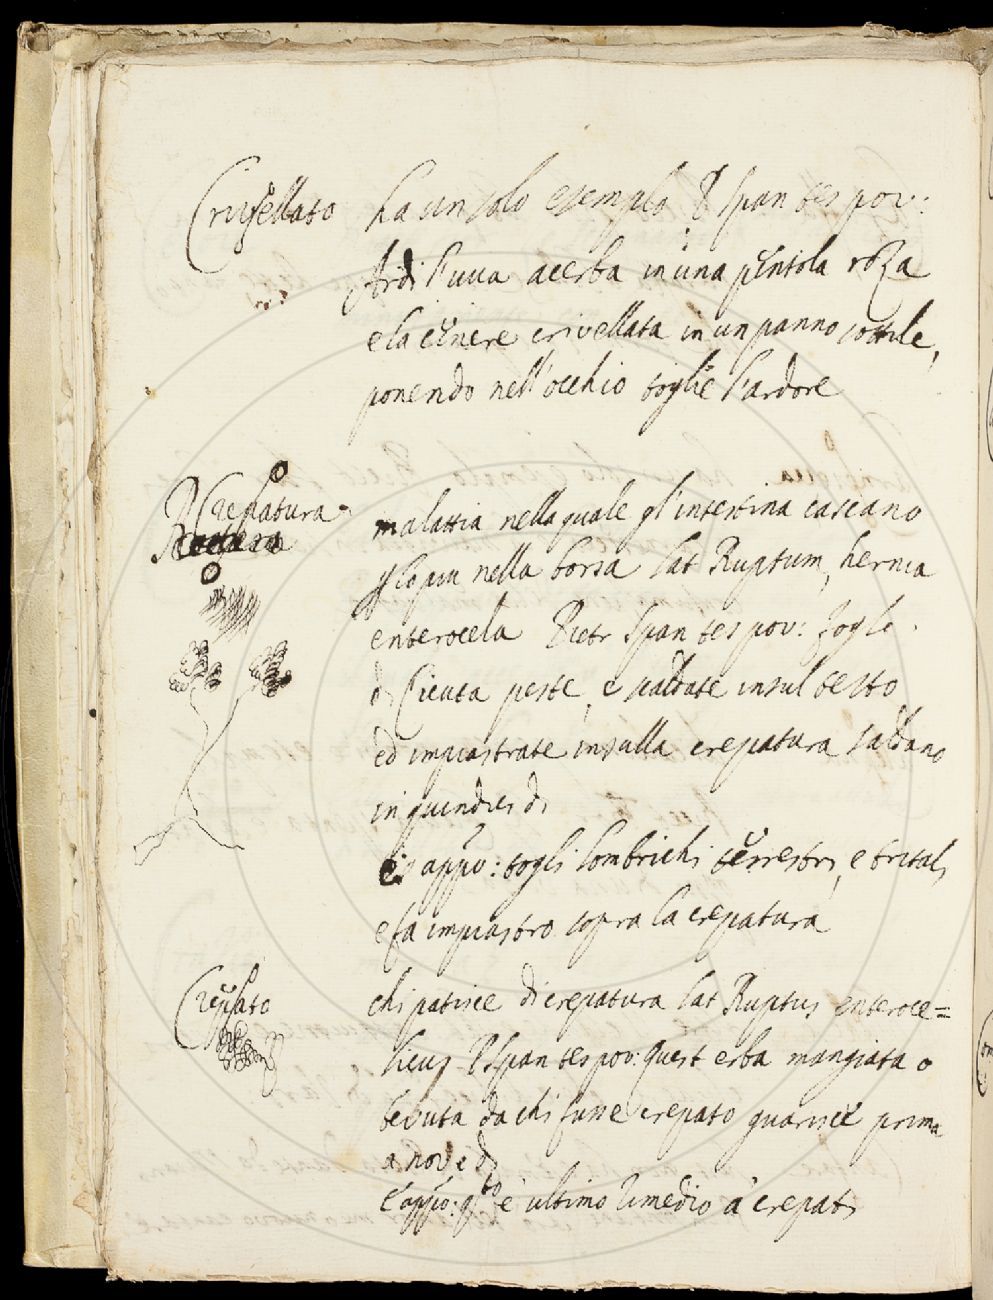 Crivellato ha un solo esemplo P Span tes pov:
Ardi l'uva acerba in una pentola roza
e la cenere crivellata in un panno sottile,
ponendo nell'occhio toglie l'ardore
Crepatura malattia nella quale gl'intestina cascano
nella borsa lat Ruptum, hernia
enterocela Pietr Span tes pov: fogle
di Cicuta peste, e scaldate insul testo
ed impiastrate insulla crepatura saldano
in quindici di
E appo: togli lombrichi terrestri, e tritali
e fa impiastro sopra la crepatura
Crepato chi patisce di crepatura lat Ruptus enteroce=
licus P Span tes pov: Quest erba mangiata o
bevuta da chi fusse crepato guarisce prima
a nove dì
E appo: qto è ultimo rimedio a crepati